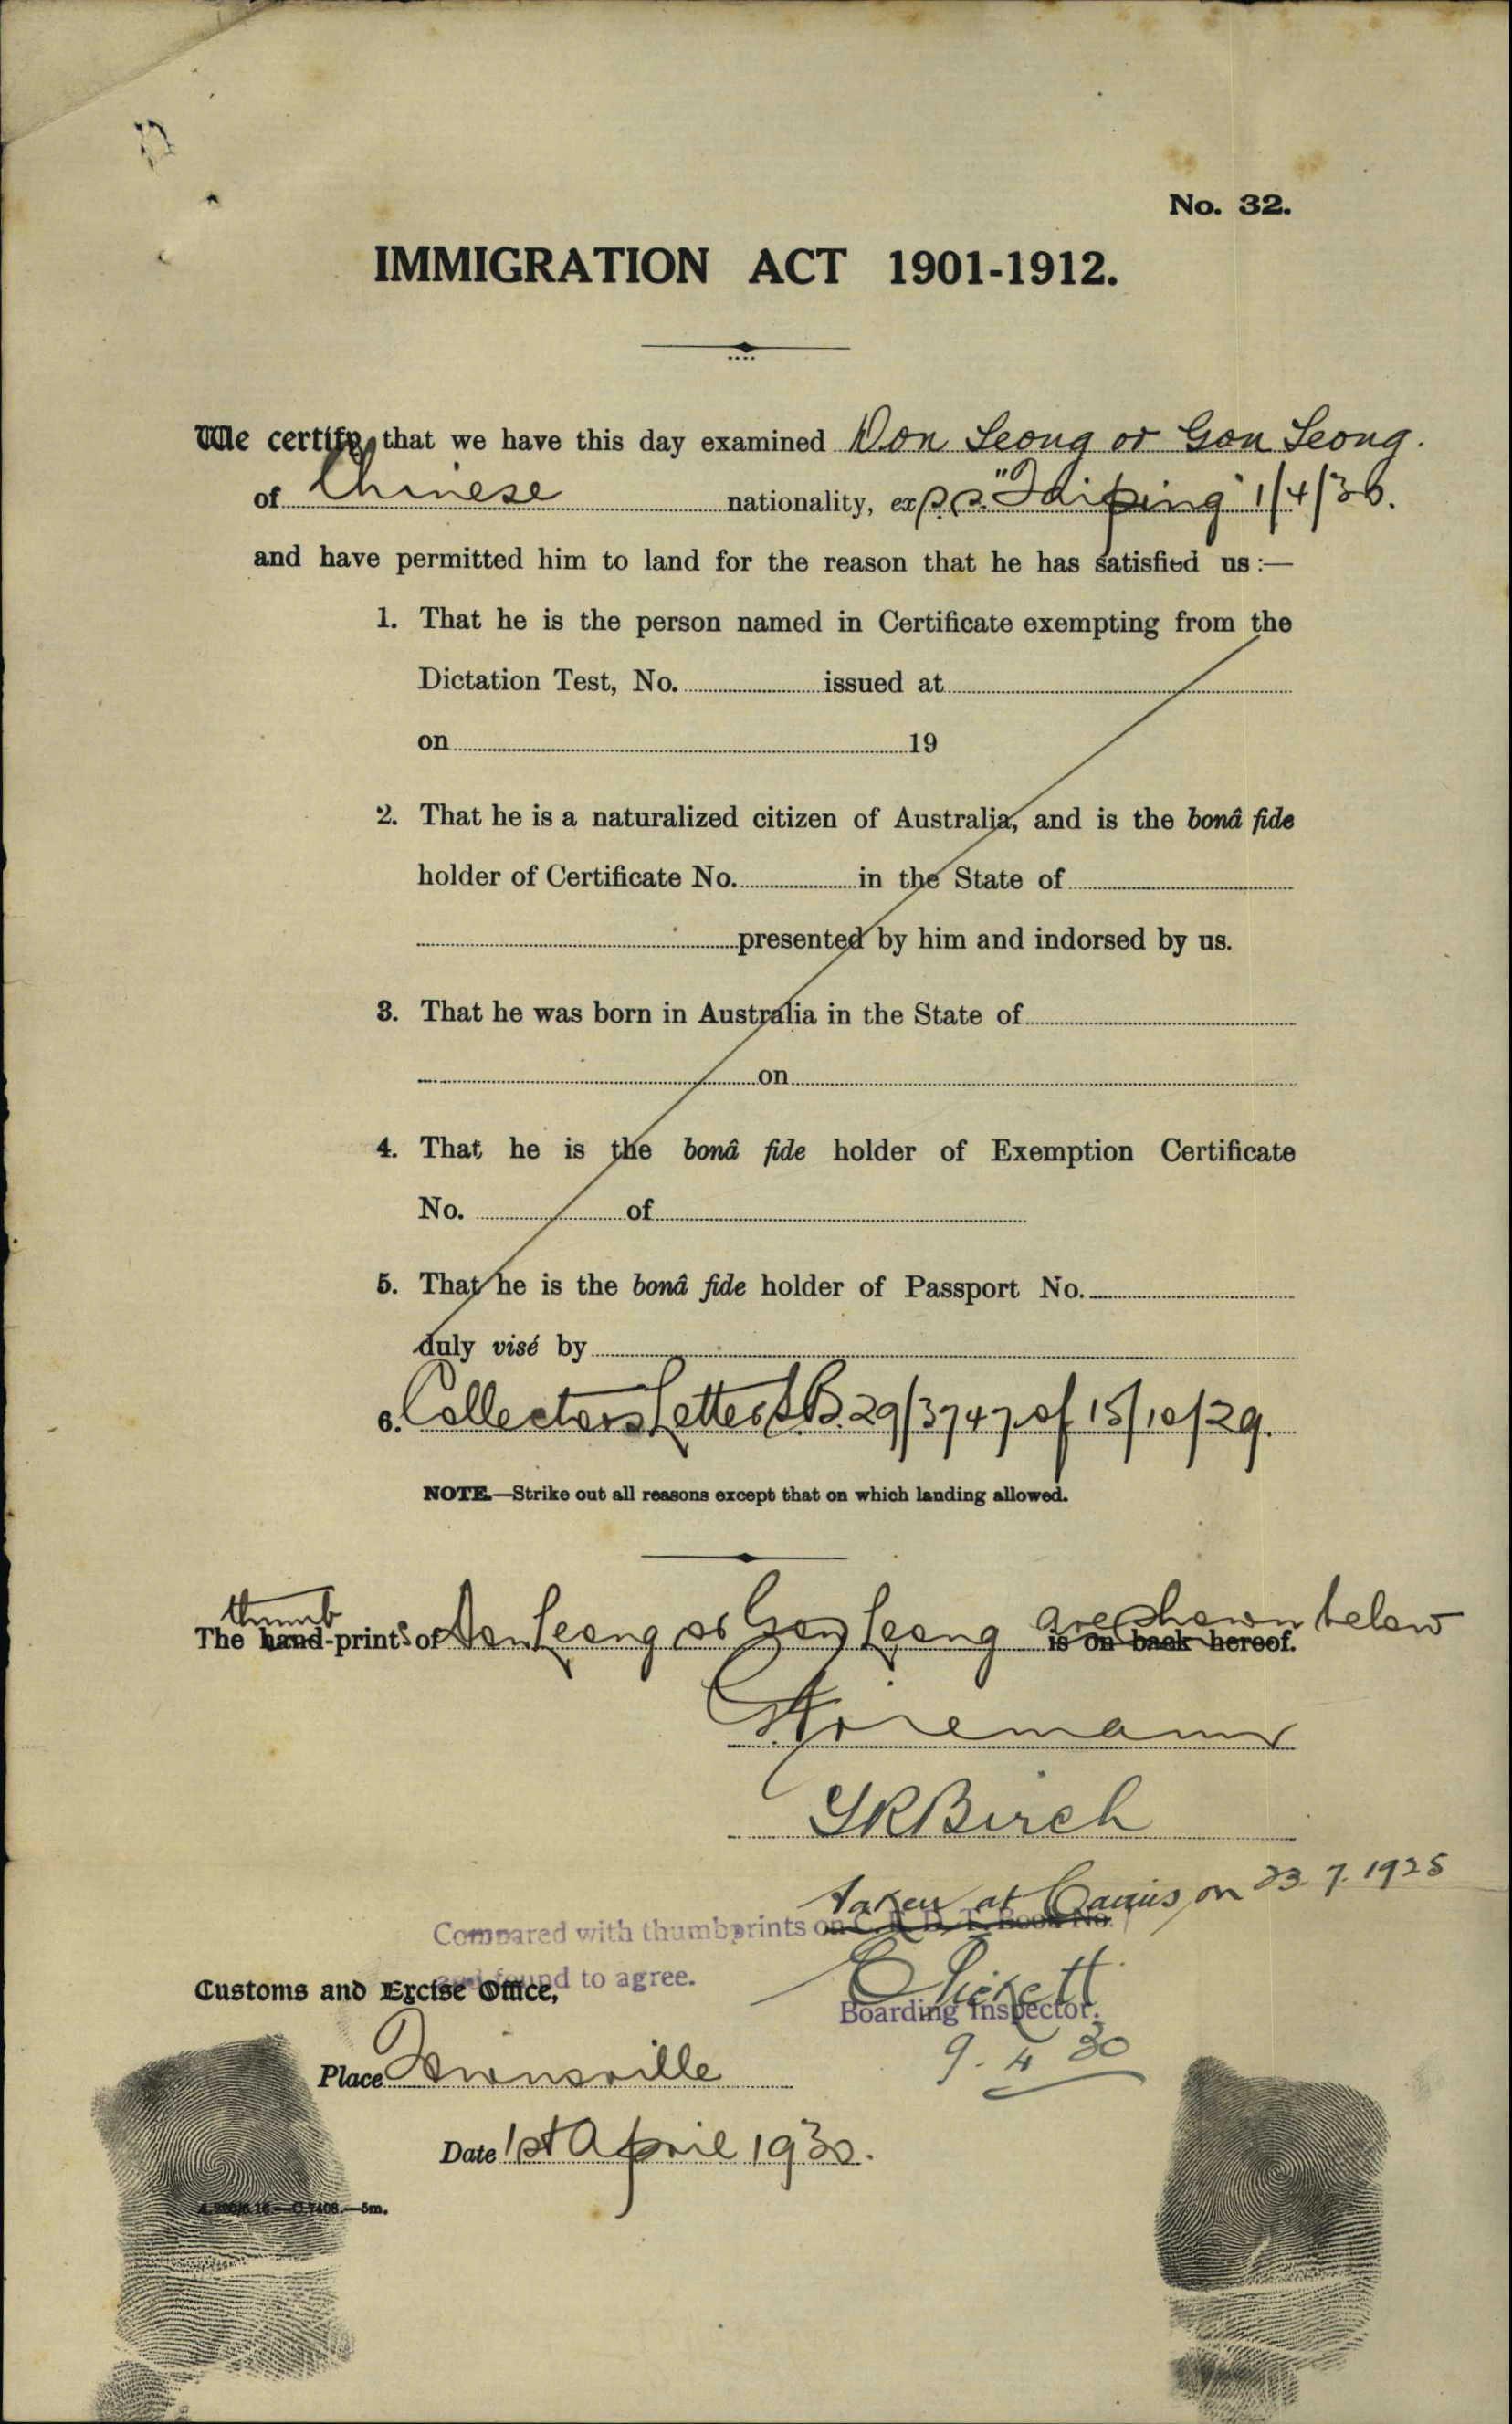 No. 32.
IMMIGRATION ACT 1901-1912.
We certify that we have this day examined Don Leong or Gon Leong.
of Chinese nationality, ex s.s. "Taiping" 1/4/30.
and have permitted him to land for the reason that he has satisfied us :—
1. That he is the person named in Certificate exempting from the
Dictation Test, No. issued at
on 19
2. That he is a naturalized citizen of Australia, and is the bonâ fide
holder of Certificate No. in the State of
presented by him and indorsed by us.
3. That he was born in Australia in the State of
on
4. That he is the bonâ fide holder of Exemption Certificate
No. of
5. That he is the bonâ fide holder of Passport No.
duly visé by
6. Collectors Letter 29/3747 of 15/10/29.
NOTE.—Strike out all reasons except that on which landing allowed.
thumb are shown below
The hand-prints of Don Leong or Gon Leong is on back hereof.
YRBirch
taken at Cairns on 23.7.1925
Compared with thumbprints on C. E. D. T. Book No.
and found to agree.
Customs and Excise Office,
Boarding Inspector.
9. 4 30
Place Townsville
Date 1st April 1930.
C.7408.—5m.